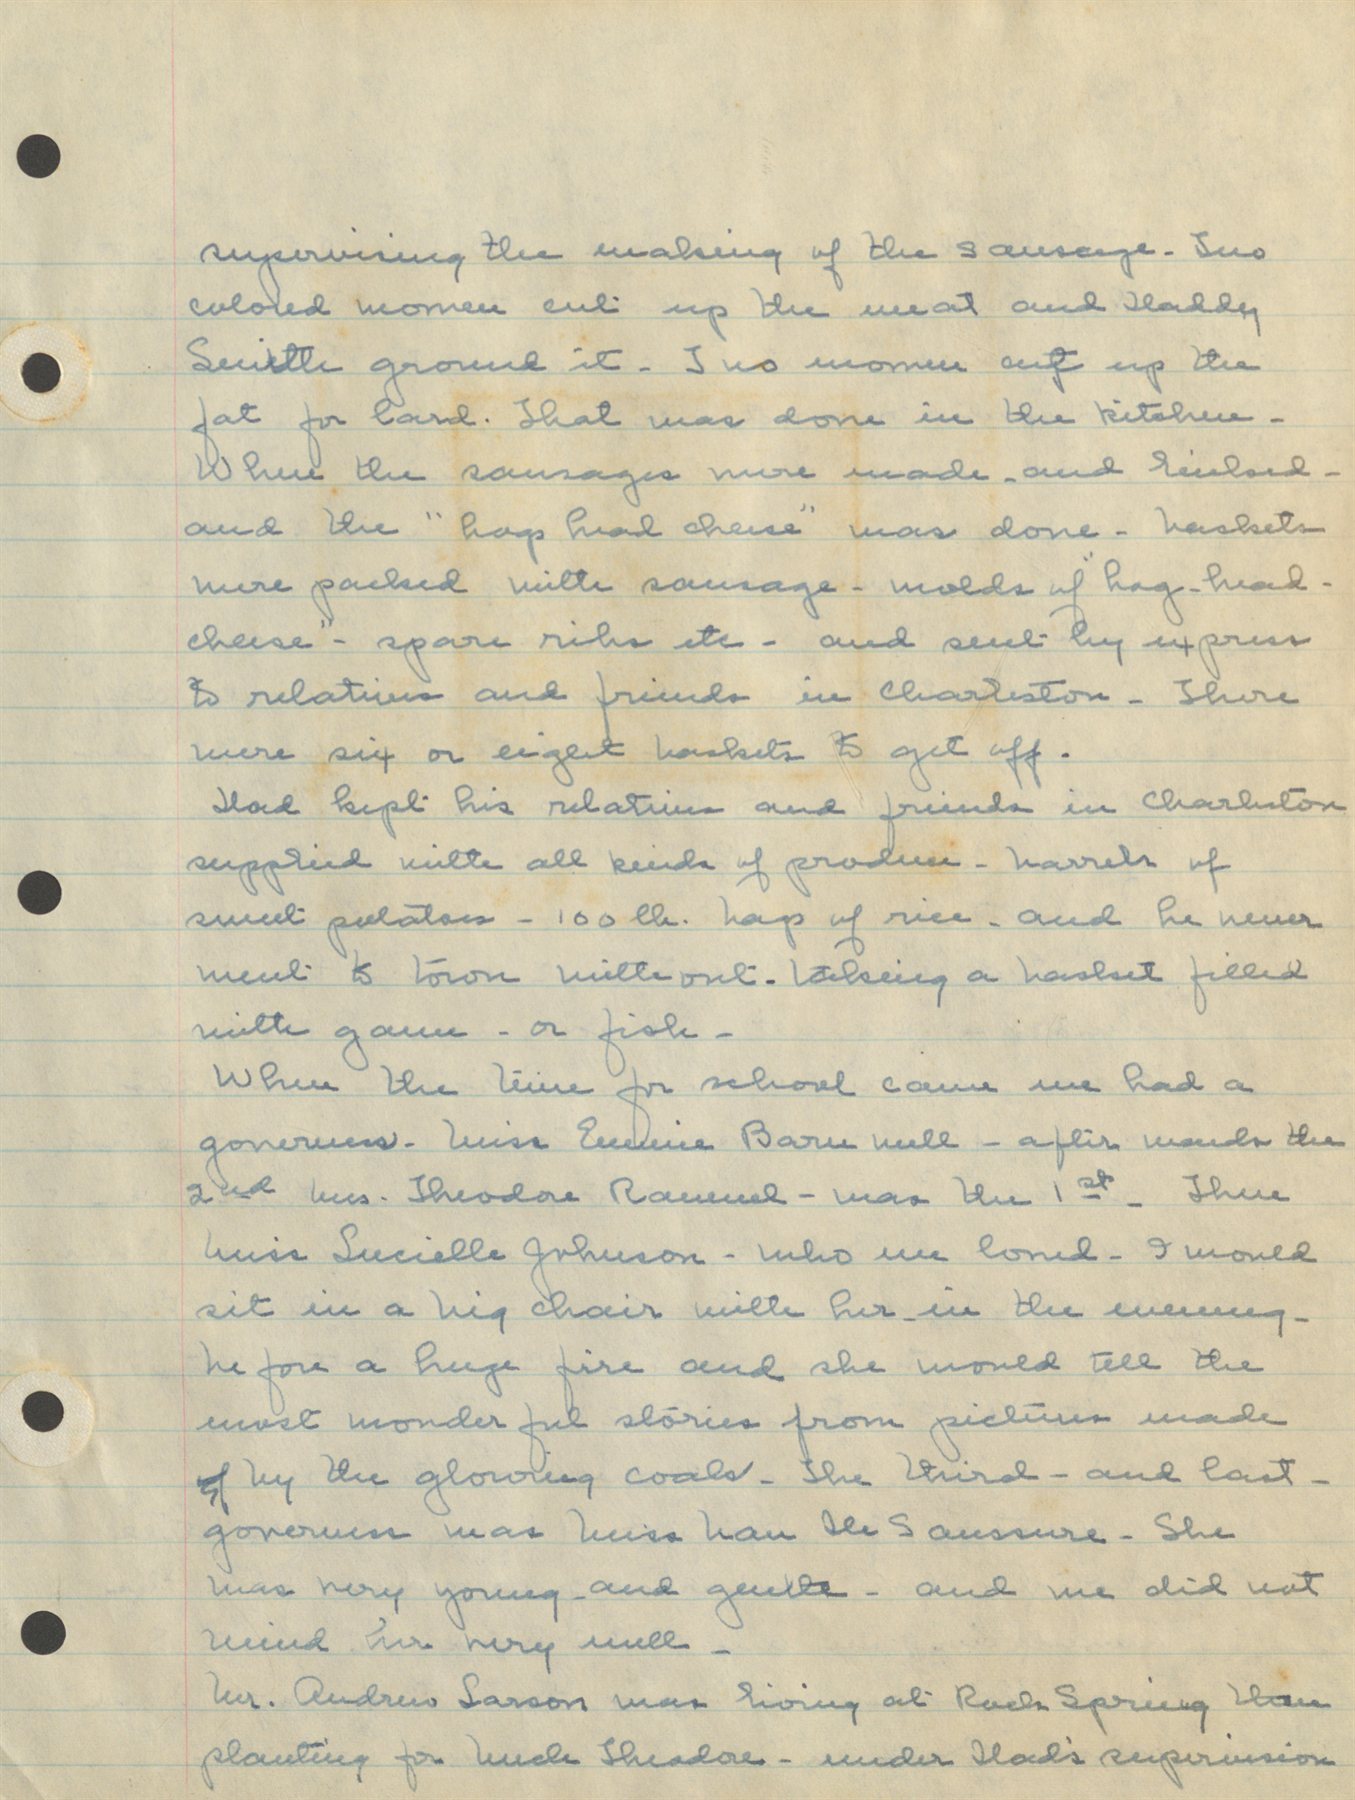 supervising the making of the sausage - Two
colored women cut up the meat and Daddy
Smith ground it - Two women cut up the
fat for lard. That was done in the kitchen -
When the sausages were made - and linked -
and the "hogs head cheese" was done - baskets
were packed with sausage - molds of "hog - head -
cheese" - spare ribs etc - and sent by express
to relatives and friends in Charleston - There
were six or eight baskets to get off.
Dad kept his relatives and friends in Charleston
supplied with all kinds of produce - barrels of
sweet potatoes - 100 lb. bags of rice - and he never
went to town without - taking a basket filled
with game - or fish -
When the time for school came we had a
governess - Miss Emmie Barnwell - afterwards the
2nd Mrs. Theodore Ravenel - was the 1st - Then
Miss Lucielle Johnson - who we loved - I would
sit in a big chair with her - in the evening -
before a huge fire and she would tell the
most wonderful stories from pictures made
by the glowing coals - The third - and last -
governess was Miss Nan De Saussure - She
was very young - and gentle - and we did not
mind her very well -
Mr. Andrew Larson was living at Rock Spring then
planting for Uncle Theodore - under Dad's supervision